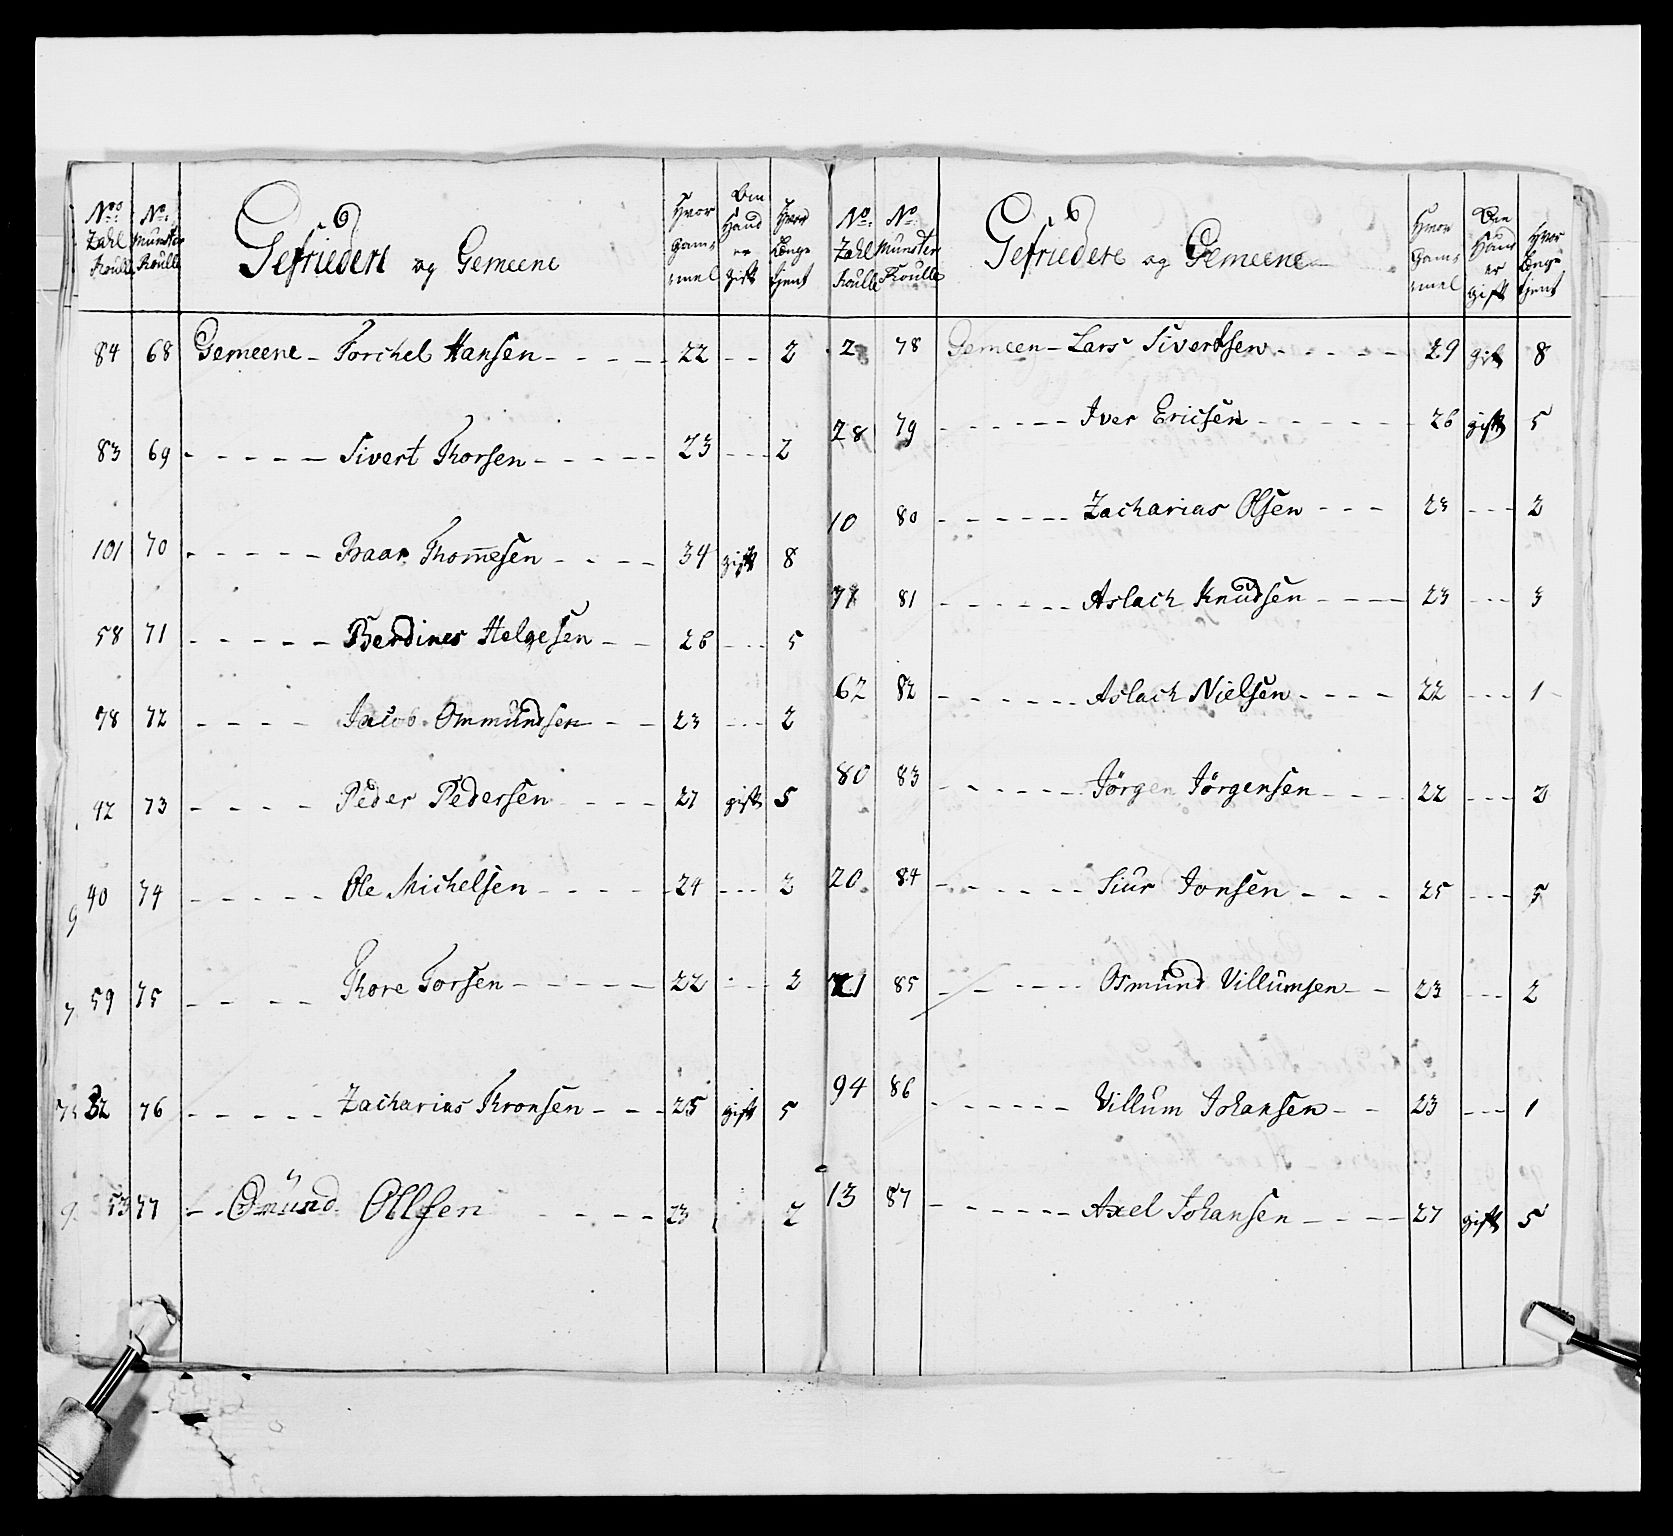 No: Zahl Roulle | No: Munster Roulle | Gefriedere og Gemeene | Hvor Gam: mel | Om Hand er Gift | Hvor Lenge tjent
84 68 Gemeene - Torchel Hansen - - - - - 22 - - - 2
83 69 - - - - - Sivert Thorsen - - - - - 23 - - - 2
101 70 - - - - - Baar Thomesen - - - - 34 gift 8
58 71 - - - - - Berdines Helgesen - - 26 - - - 5
78 72 - - - - Jacob Ommundsen - - 23 - - - 2
42 73 - - - - Peder Pedersen - - - 27 gift 5
40 74 - - - - - Ole Michelsen - - - - - 24 - - - 2
59 75 - - - - Thore Torsen - - - - - 22 - - - 2
32 76 - - - - - Zacharias Thronsen - - - 25 gift 5
53 77 - - Omund Ollsen - - - - 23 2
No: Zahl Roulle | No: Munster Roulle | Gefriedere og Gemeene | Hvor Gam: mel | Om Hand er gift | Hvor Lenge tjent
2 78 Gemeen - Lars Sivertsen - - - - - 29 gift 8
28 79 - - - - - - Iver Ericsen - - - - - - 26 gift 5
10 80 - - - - - - Zacharias Olsen - - - 23 - - - 2
71 81 - - - - - - Aslach Knudsen - - - - 23 - - - 3
62 82 - - - - - - Aslach Nielsen - - - - 22 - - - 1
80 83 - - - - - - Jörgen Jörgensen - - - 22 - - - 2
20 84 - - - - - - Siur Jonsen - - - 25 - - - 5
71 85 - - - - - - Osmund Villumsen - - 23 - - - 2
94 86 - - - - - - Villum Johansen - - 23 - - - 1
13 87 - - - - - - Axel Johansen - - - - 27 gift 5